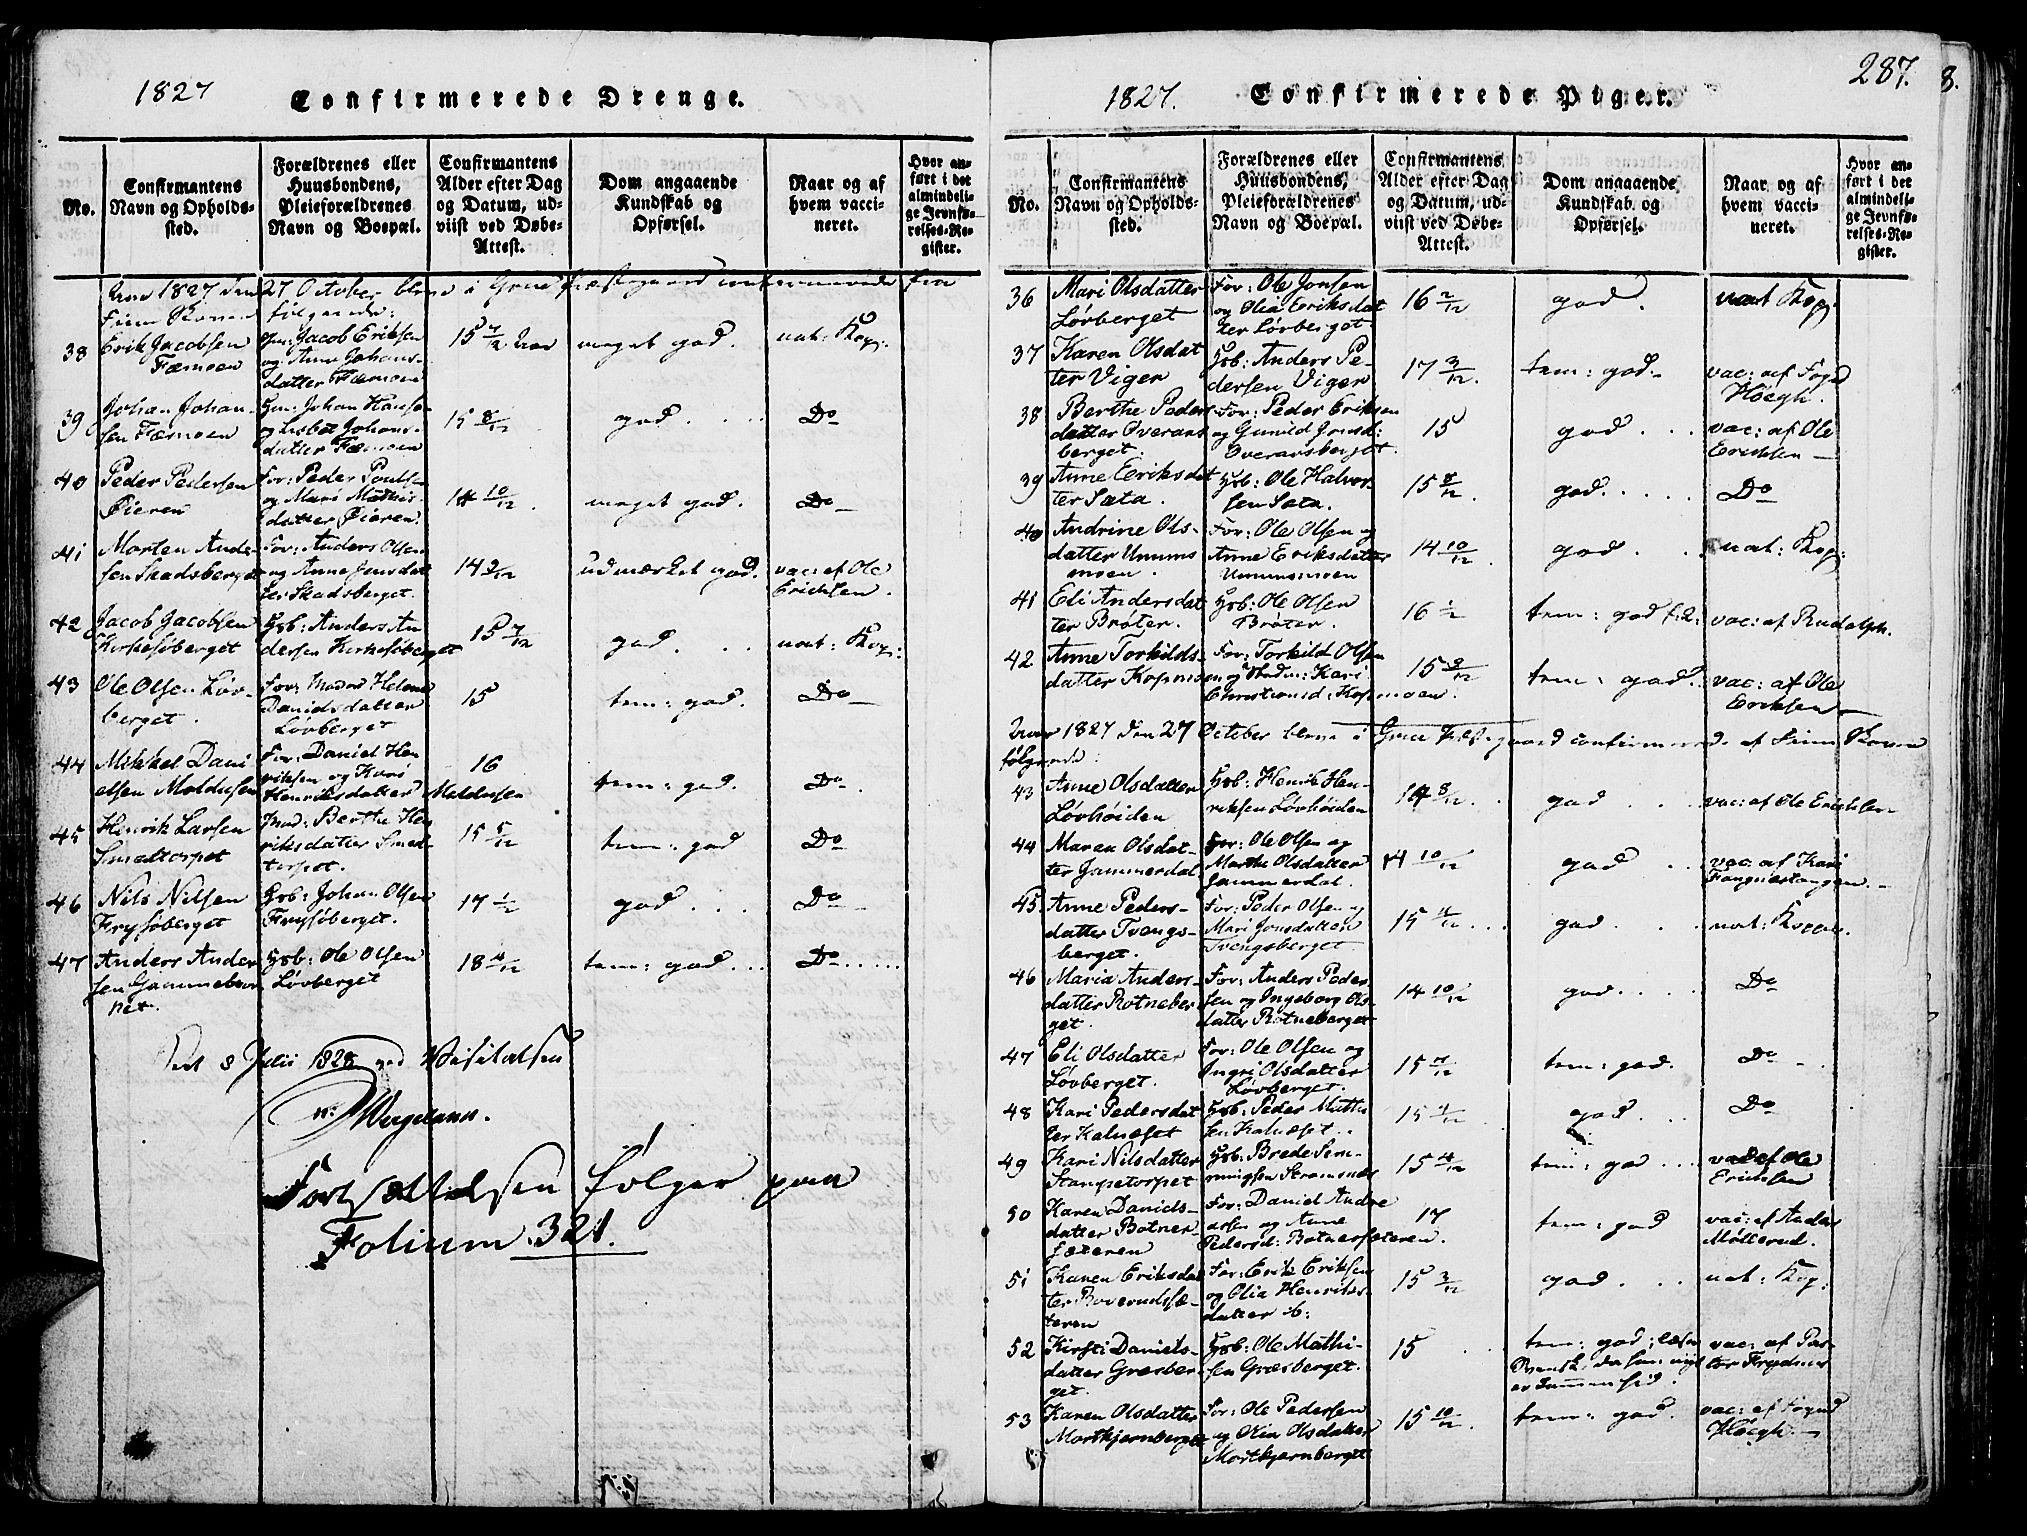 1827
Confirmerede Drenge.
No.
Confirmantens
Navn og Opholds-
sted.
Forældrenes eller
Huusbondens,
Pleieforældrenes
Navn og Boepæl.
Confirmantens
Alder efter Dag
og Datum, ud-
viist ved Døbe-
Attest.
Dom angaaende
Kundskab og
Opførsel.
Naar og af
hvem vacci-
neret.
Hvor an-
ført i det
almindeli-
ge Jevnfø-
relses-Re-
gister.
1827 den 27 October bleve i Grue Præstegaard confirmerede fra
følgende:
38 Erik Jacobsen
Fæmoen
For: Jacob Eriksen
og Anne Johans-
datter Fæmoen
15 7/12 Aar
meget god.
nat: Kop:
39 Johan Johan-
sen Fæmoen
For: Johan Hanse
og Lisbet Johans-
datter Fæmoen
15 8/12
god
Do
40 Peder Pedersen
Øieren
For: Peder Poulsen
og Mari Mathis-
datter Øieren
14 10/12
meget god.
Do
41 Morten Ander-
sen Skadsberget
For: Anders Olsen
og Anne Jonsdat
ter Skadsberget.
14 9/12
udmærket god.
vac: af Ole
Erichsen.
42 Jacob Jacobsen
Kirkesøberget
Hsb: Anders An
dersen Kirkesøberget
15 7/12
god
nat: Kop:
43 Ole Olsen Løv-
berget.
For: Moder Helene
Danielsdatter
Løvberget
15
tem: god.
Do
44 Mikkel Dani
elsen Maldusen
For: Daniel Hen
riksen og Kari
Henriksdatter Maldusen
16
tem: god.
Do
45 Henrik Larsen
Smedtorpet
Mod: Berthe Hen
riksdatter Smed-
torpet.
15 5/12
tem: god
Do
46 Nils Nilsen
Frysøberget
Hsb: Johan Olsen
Frysøberget.
17 1/2
god
Do
47 Anders Ander
sen Gammeltor
pet.
Hsb: Ole Olsen
Løvberget
18 4/12
tem: god
Do
8 Julii 1828 ved Visitatsen
N: Wergeland.
Fortsættelsen følger paa
Folium 321.
287.
8.
1827.
Confirmerede Piger.
No.
Confirmantens
Navn og Opholds-
sted.
Forældrenes eller
Huusbondens,
Pleieforældrenes
Navn og Boepæl.
Confirmantens
Alder efter Dag
og Datum, ud-
viist ved Døbe-
Attest.
Dom angaaende
Kundskab og
Opførsel.
Naar og af
hvem vacci-
neret.
Hvor an-
ført i det
almindeli-
ge Jevnfø-
relses-Re-
gister.
36 Mari Olsdatter
Løvberget
For: Ole Jonsen
og Olia Eriksdat
ter Løvberget
16 2/12
god.
nat Kop:
37 Karen Olsdat
ter Viger
Hsb: Anders Pe-
dersen Viger
17 3/12.
tem: god.
vac: af Fogd
Höegh.
38 Berthe Peders
datter Overaas
berget.
For: Peder Eriksen
og Gunild Jonsd:
Overaasberget.
15
god
vac: af Ole
Erichsen
39 Anne Eeriksdat
ter Sæta.
Hsb: Ole Halvor-
sen Sæta.
15 8/12
god.
Do
40 Andrine Ols-
datter Unums
moen.
For: Ole Olsen og
Anne Eriksdatter
Unumsmoen
14 10/12
god
nat: Kop:
41 Eli Andersdat
ter Brøter.
Hsb: Ole Olsen
Brøter.
16 1/2
tem: god
vac: af Rudolph.
42 Anne Torkilds-
datter Kopmoen
For: Torkild Olsen
og Kari
Christiansd: Kopmoen.
15 9/12
tem: god.
vac: af Ole
Eriksen
1827 den 27 October bleve i Grue Præstegaard confirmerede af
følgende:
43 Anne Olsdatter
Løvhøiden
Hsb: Henrik Hen-
riksen Løvhøiden
14 8/12
god
vac: af Ole Erichsen
44 Maren Olsdat-
ter Jammerdal
For: Ole Olsen og
Marthe Olsdatter
Jammerdal.
14 10/12
god
vac: af Kari
Fangnæstangen.
45. Anne Peders-
datter Tvengs-
berget.
For: Peder Olsen og
Mari Jonsdatter
Tvengsberget.
15 11/12
god
nat: Kopper.
46 Maria Anders-
datter Rotneber
get.
For: Anders Peder
sen og Ingeborg Ols-
datter Rotneberget
14 10/12
god
Do
47 Eli Olsdatter
Løvberget.
For: Ole Olsen og
Ingri Olsdatter
Løvberget.
15 7/12
tem: god.
Do
48 Kari Pedersdat
ter Kalnæset
Hsb: Peder Mathi
sen Kalnæset.
15 4/12
god
Do
49 Kari Nilsdatter
Stampetorpet
Hsb: Brede Sem-
mingsen Strømsnæs
15 4/12
tem: god
vac: af Ole
Erichsen
50 Karen Daniels-
datter Botner-
sæteren
For: Daniel Andre
asen og Anne
Pedersd: Botnersæteren.
17
tem: god
vac: af Anders
Møllerud.
51 Karen Eriksdat
ter Roverudssæ-
teren
For: Erik Eriksen
og Olia Henriks-
datter ib:
15 3/12
god
nat: Kop:
52 Kirsti Daniels-
datter Græsber
get.
Hsb: Ole Mathi-
sen Græsberget.
15
tem: god; læser
Svensk,
vac: af Pas-
tor Frydner
53 Karen Olsdatter
Mortkjernberget
For: Ole Pedersen
og Olia Olsdatter
Mortkjernberget
15 10/12
tem: god.
vac: af Fogd
Höegh.